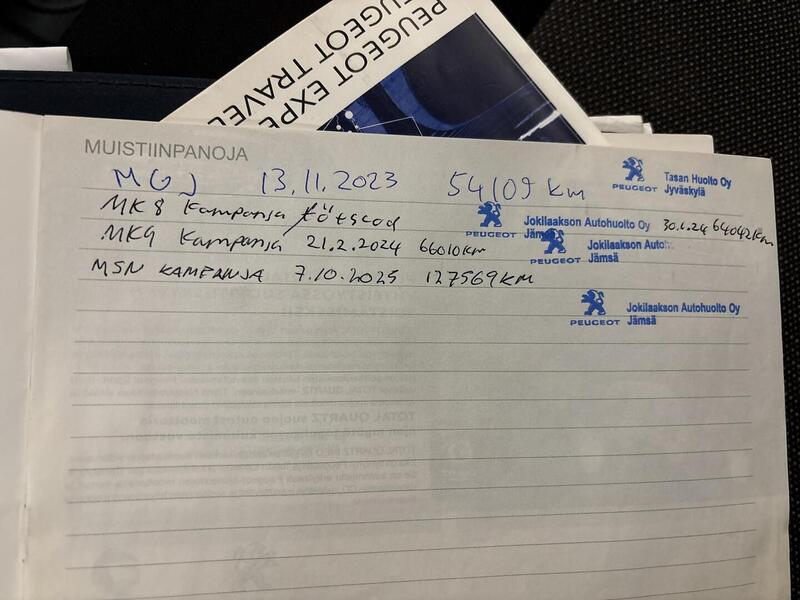 PEUGEOT EXPE
PEUGEOT TRAVEL
MUISTIINPANOJA
MGJ 13.11.2023 54109 km PEUGEOT Tasan Huolto Oy
Jyväskylä
MK8 Kampanja PEUGEOT Jokilaakson Autohuolto Oy 30.1.24 64042km
Jämsä
MK9 Kampanja 21.2.2024 66010km PEUGEOT Jokilaakson Autoh
Jämsä
MSN KAMPANJA 7.10.2025 127569KM
PEUGEOT Jokilaakson Autohuolto Oy
Jämsä